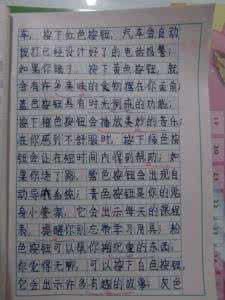 车，按下红色按钮，汽车会自动
拨打已经设计好了的电话报警；
如果你饿了，按下黄色按钮，就
会有许多美味的食物摆在你面前；
蓝色按钮具有时光倒流的功能；
按下橙色按钮会播放美妙的音乐；
在你感到不舒服时，按下绿色按
钮会让在短时间内得到帮助；如
果你迷了路，紫色按钮会出现自
动导航系统；青色按钮是你的贴
身小管家，它会出示每天的课程
表，提醒你别忘带学习用具；粉
色按钮可以帮你搬沉重的东西；
你觉得无聊，可以按下白色按钮，
它会出示许多有趣的故事；灰色